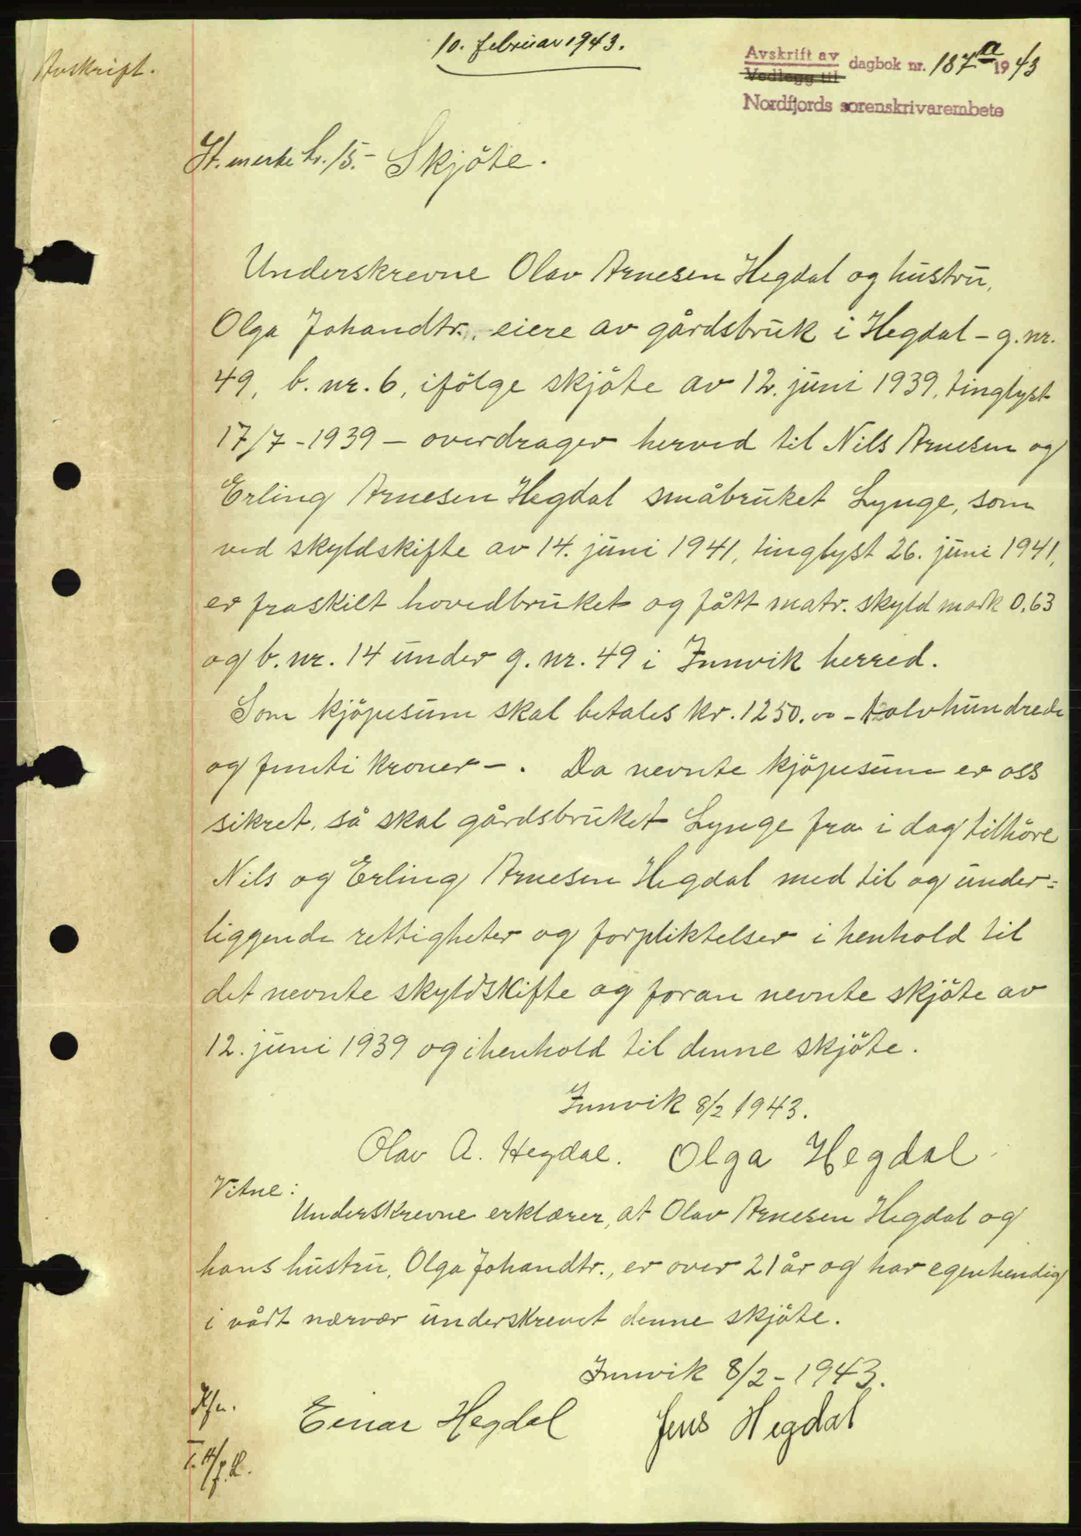 Avskript.
10. februar 1943.
Avskrift av
Vedlegg til
dagbok nr. 187 a 1943
Nordfjords sorenskrivarembete
St. merke kr. 15.- Skjöte.
Underskrevne Olav Arnesen Hegdal og hustru,
Olga Johandtr., eiere av gårdsbruk i Hegdal - g. nr.
49, b. nr. 6, ifölge skjöte av 12. juni 1939, tinglyst
17/7 - 1939 - overdrager herved til Nils Arnesen og
Erling Arnesen Hegdal småbruket Lynge, som
ved skyldskifte av 14. juni 1941, tinglyst 26. juni 1941,
er fraskilt hovedbruket og fått matr. skyld mark 0.63
og b. nr. 14 under g. nr. 49 i Innvik herred.
Som kjöpesum skal betales kr. 1250.00 - tolvhundrede
og femti kroner - . Da nevnte kjöpesum er oss
sikret, så skal gårdsbruket Lynge fra i dag tilhöre
Nils og Erling Arnesen Hegdal med til og under=
liggende rettigheter og forpliktelser i henhold til
det nevnte skyldskifte og foran nevnte skjöte av
12. juni 1939 og i henhold til denne skjöte.
Innvik 8/2 1943.
Olav A. Hegdal. Olga Hegdal
Vitne:
Underskrevne erklærer, at Olav Arnesen Hegdal og
hans hustru, Olga Johandtr., er over 21 år og har egenhendig
i vårt nærvær underskrevet denne skjöte.
Innvik 8/2 - 1943.
Einar Hegdal Jens Hegdal